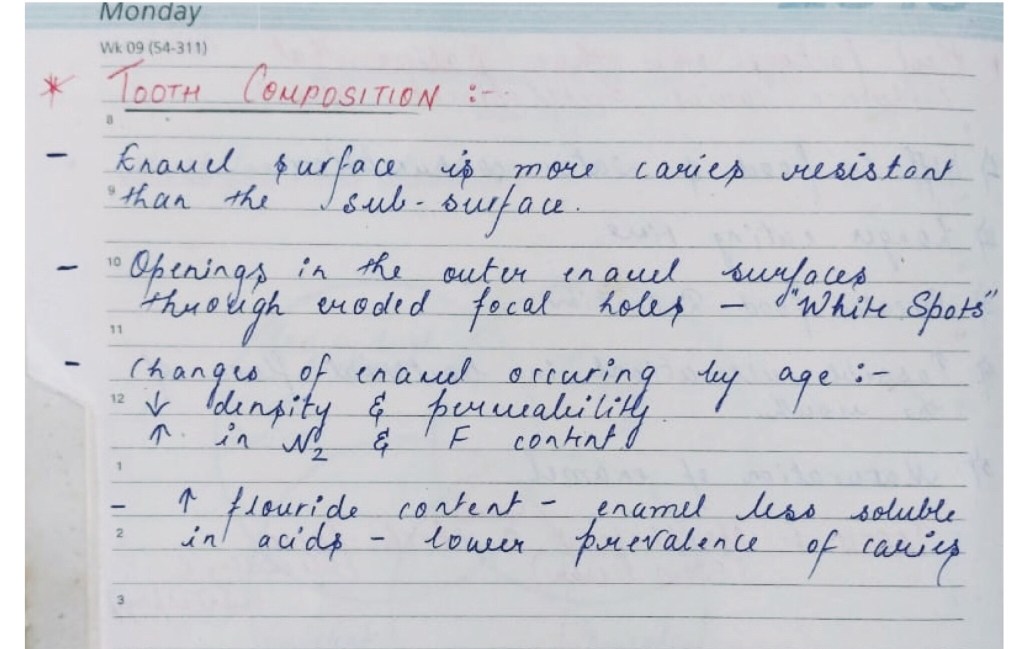 Monday
Wk 09 (54-311)
* TOOTH COMPOSITION :-
8
- Enamel surface is more caries resistant
9 than the sub-surface.
- 10 Openings in the outer enamel surfaces
through eroded focal holes - "White Spots"
11
- Changes of enamel occuring by age :-
12 ↓ density & permeability
↑ in N2 & F content
1
- ↑ flouride content - enamel less soluble
2 in acids - lower prevalence of caries
3